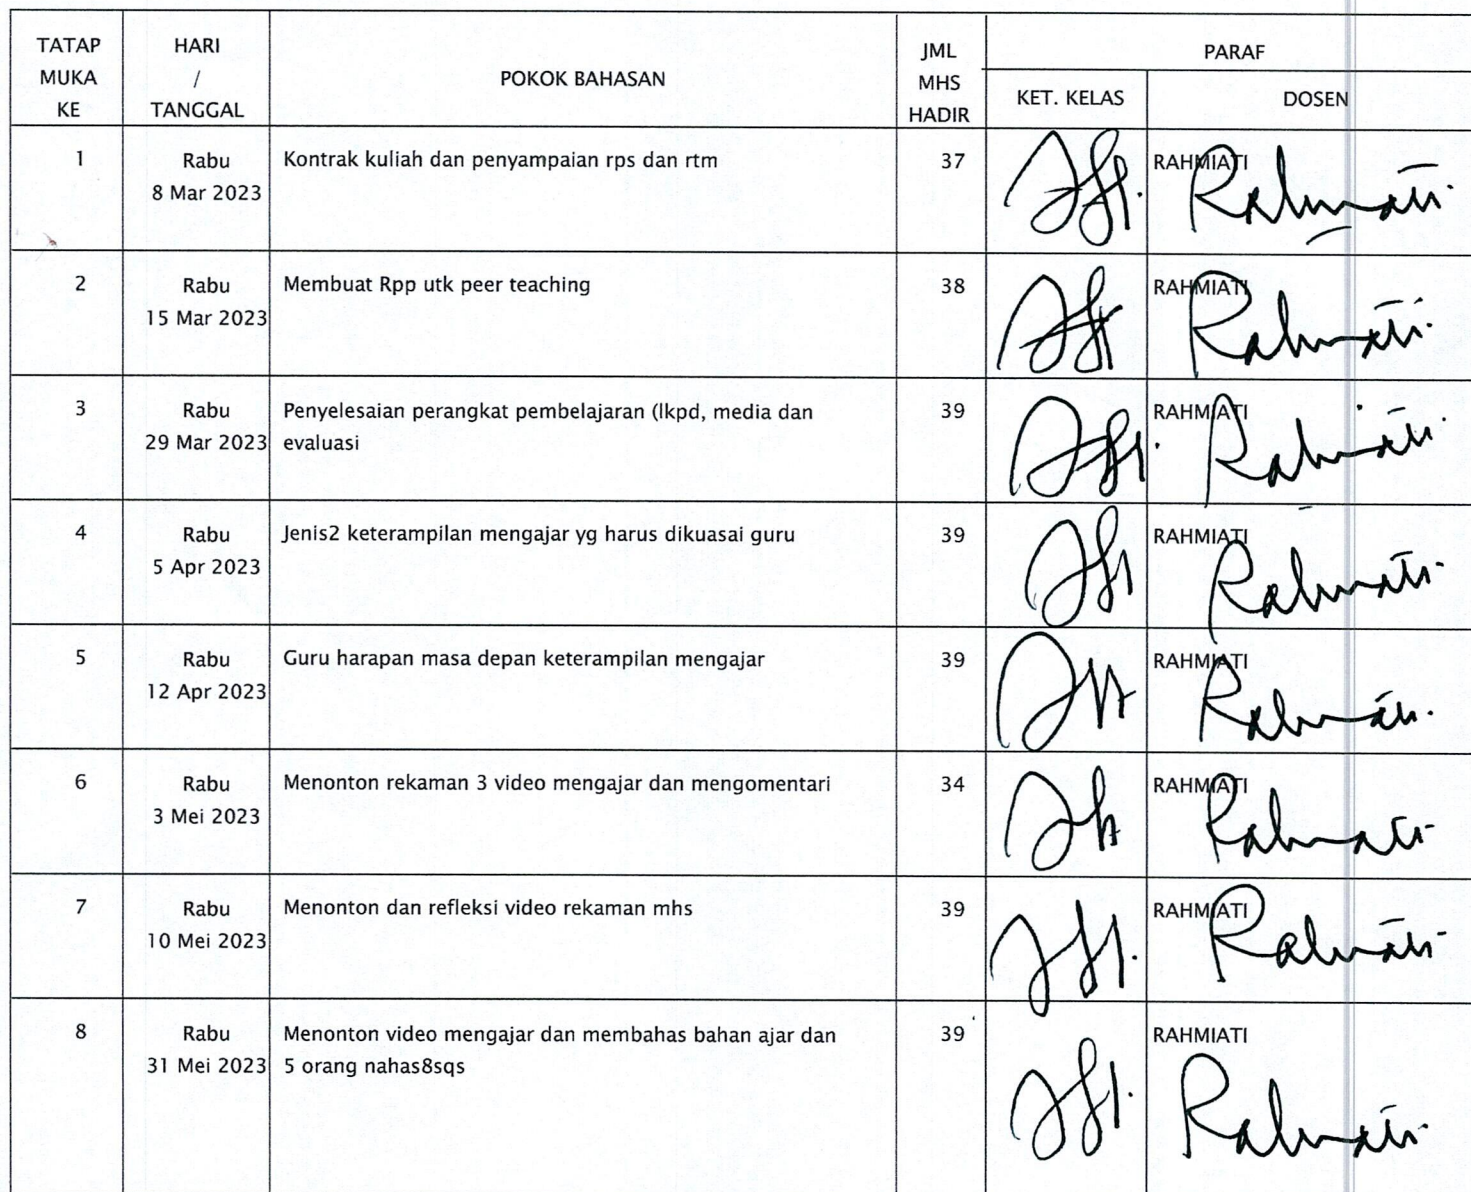 TATAP MUKA KE
HARI / TANGGAL
POKOK BAHASAN
JML MHS HADIR
PARAF
KET. KELAS
DOSEN
1
Rabu
8 Mar 2023
Kontrak kuliah dan penyampaian rps dan rtm
37
RAHMIATI
Rahmiati
2
Rabu
15 Mar 2023
Membuat Rpp utk peer teaching
38
RAHMIATI
Rahmiati
3
Rabu
29 Mar 2023
Penyelesaian perangkat pembelajaran (lkpd, media dan
evaluasi
39
RAHMIATI
Rahmiati
4
Rabu
5 Apr 2023
Jenis2 keterampilan mengajar yg harus dikuasai guru
39
RAHMIATI
Rahmiati
5
Rabu
12 Apr 2023
Guru harapan masa depan keterampilan mengajar
39
RAHMIATI
Rahmiati
6
Rabu
3 Mei 2023
Menonton rekaman 3 video mengajar dan mengomentari
34
RAHMIATI
Rahmiati
7
Rabu
10 Mei 2023
Menonton dan refleksi video rekaman mhs
39
RAHMIATI
Rahmiati
8
Rabu
31 Mei 2023
Menonton video mengajar dan membahas bahan ajar dan
5 orang nahas8sqs
39
RAHMIATI
Rahmiati